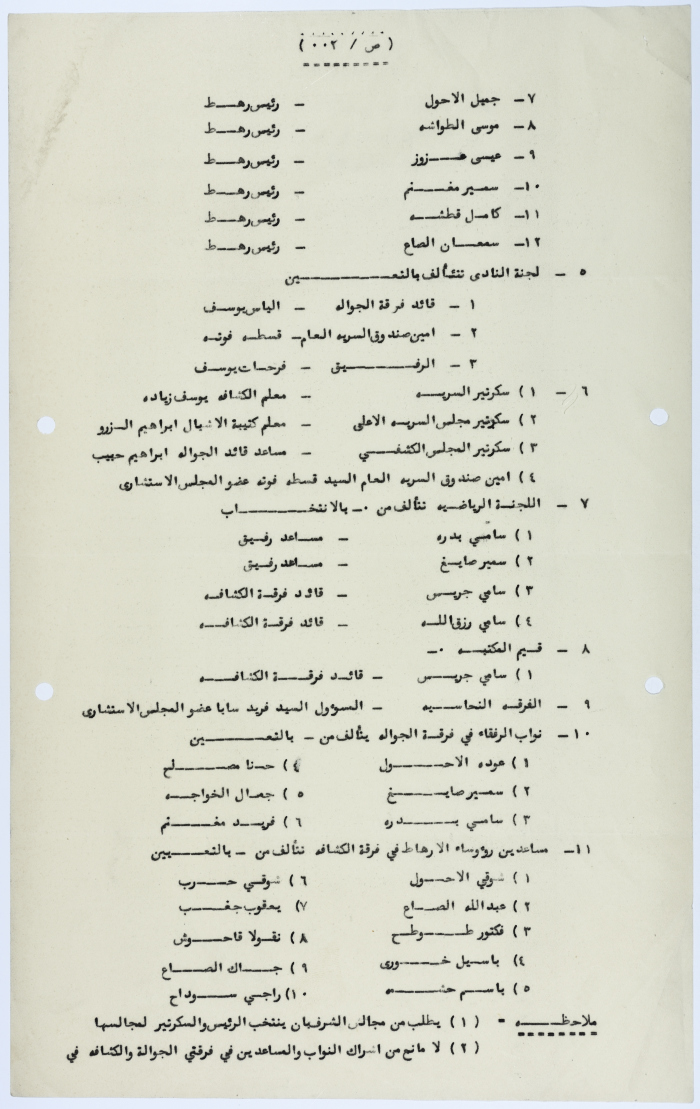 ( ص / ٠٠٢ )
٧ – جميل الاحول – رئيس رهـــط
٨ – موسى الطواشه – رئيس رهـــط
٩ – عيسى عـــزوز – رئيس رهـــط
١٠– سمـير مغــــنم – رئيس رهـــط
١١– كامـل قطشـــه – رئيس رهـــط
١٢– سمعـــان الصاع – رئيس رهـــط
٥ – لجنة النادى تتـألف بالتعـــــــــيين
١ – قائد فرقة الجواله – الياس يوســف
٢ – امين صندوق السريه العـام – قسطـه فوتـه
٣ – الرفـــــيق – فرحـات يوســف
٦ – ١ ) سكرتير السريـــه – معلم الكشافه يوسف زياده
٢ ) سكرتير مجلس السريـه الاعلى – معلم كتيبة الاشبال ابراهيم الـزرو
٣ ) سكرتير المجلس الكشفـــي – مساعد قائد الجواله ابراهيم حبيب
٤ ) امين صندوق السريه العـام السيد قسطه فوته عضو المجلس الاستشارى
٧ – اللجنـة الرياضيـه تتألف من ٠– بالانتخـــــــاب
١ ) سامـي بدره – مسـاعد رفيـق
٢ ) سمير صايـــغ – مسـاعد رفيـق
٣ ) سامي جريـــس – قائد فرقـة الكشافـه
٤ ) سامي رزق اللـــه – قائد فرقـة الكشافـــه
٨ – قـيم المكتبـــه ٠–
١ ) سامي جريـــس – قائـد فرقـــة الكشافـــه
٩ – الفرقـه النحاسـيه – المسؤول السيد فريد سابا عضو المجلس الاستشارى
١٠– نواب الرفقاء في فرقـة الجواله يتألف من – بالتعـــــــيين
١ ) عوده الاحـــــول ٤ ) حـنا مصـــــلح
٢ ) سمـير صايـــــغ ٥ ) جمـال الخواجـــه
٣ ) سامـي بـــــدره ٦ ) فريـــد مغـــــنم
١١– مساعدين رؤوساء الارهاط في فرقة الكشافه تتألف من – بالتعـــيين
١ ) شوقي الاحـــــول ٦ ) شوقـي حـــرب
٢ ) عبد اللـه الصـــاع ٧ ) يعقوب جغـــــب
٣ ) فكتور طـــوطـح ٨ ) نقـولا قاحـــوش
٤ ) باسـيل خـــورى ٩ ) جـــاك الصـــاع
٥ ) باسـم حشـــمه ١٠ ) راجـي ســـوداح
ملاحظـــــه – ( ١ ) يطلب من مجالس الشرف بان ينتخب الرئيس والسكرتير لمجالسها
( ٢ ) لا مانع من اشراك النواب والمساعدين في فرقتي الجوالة والكشافه في